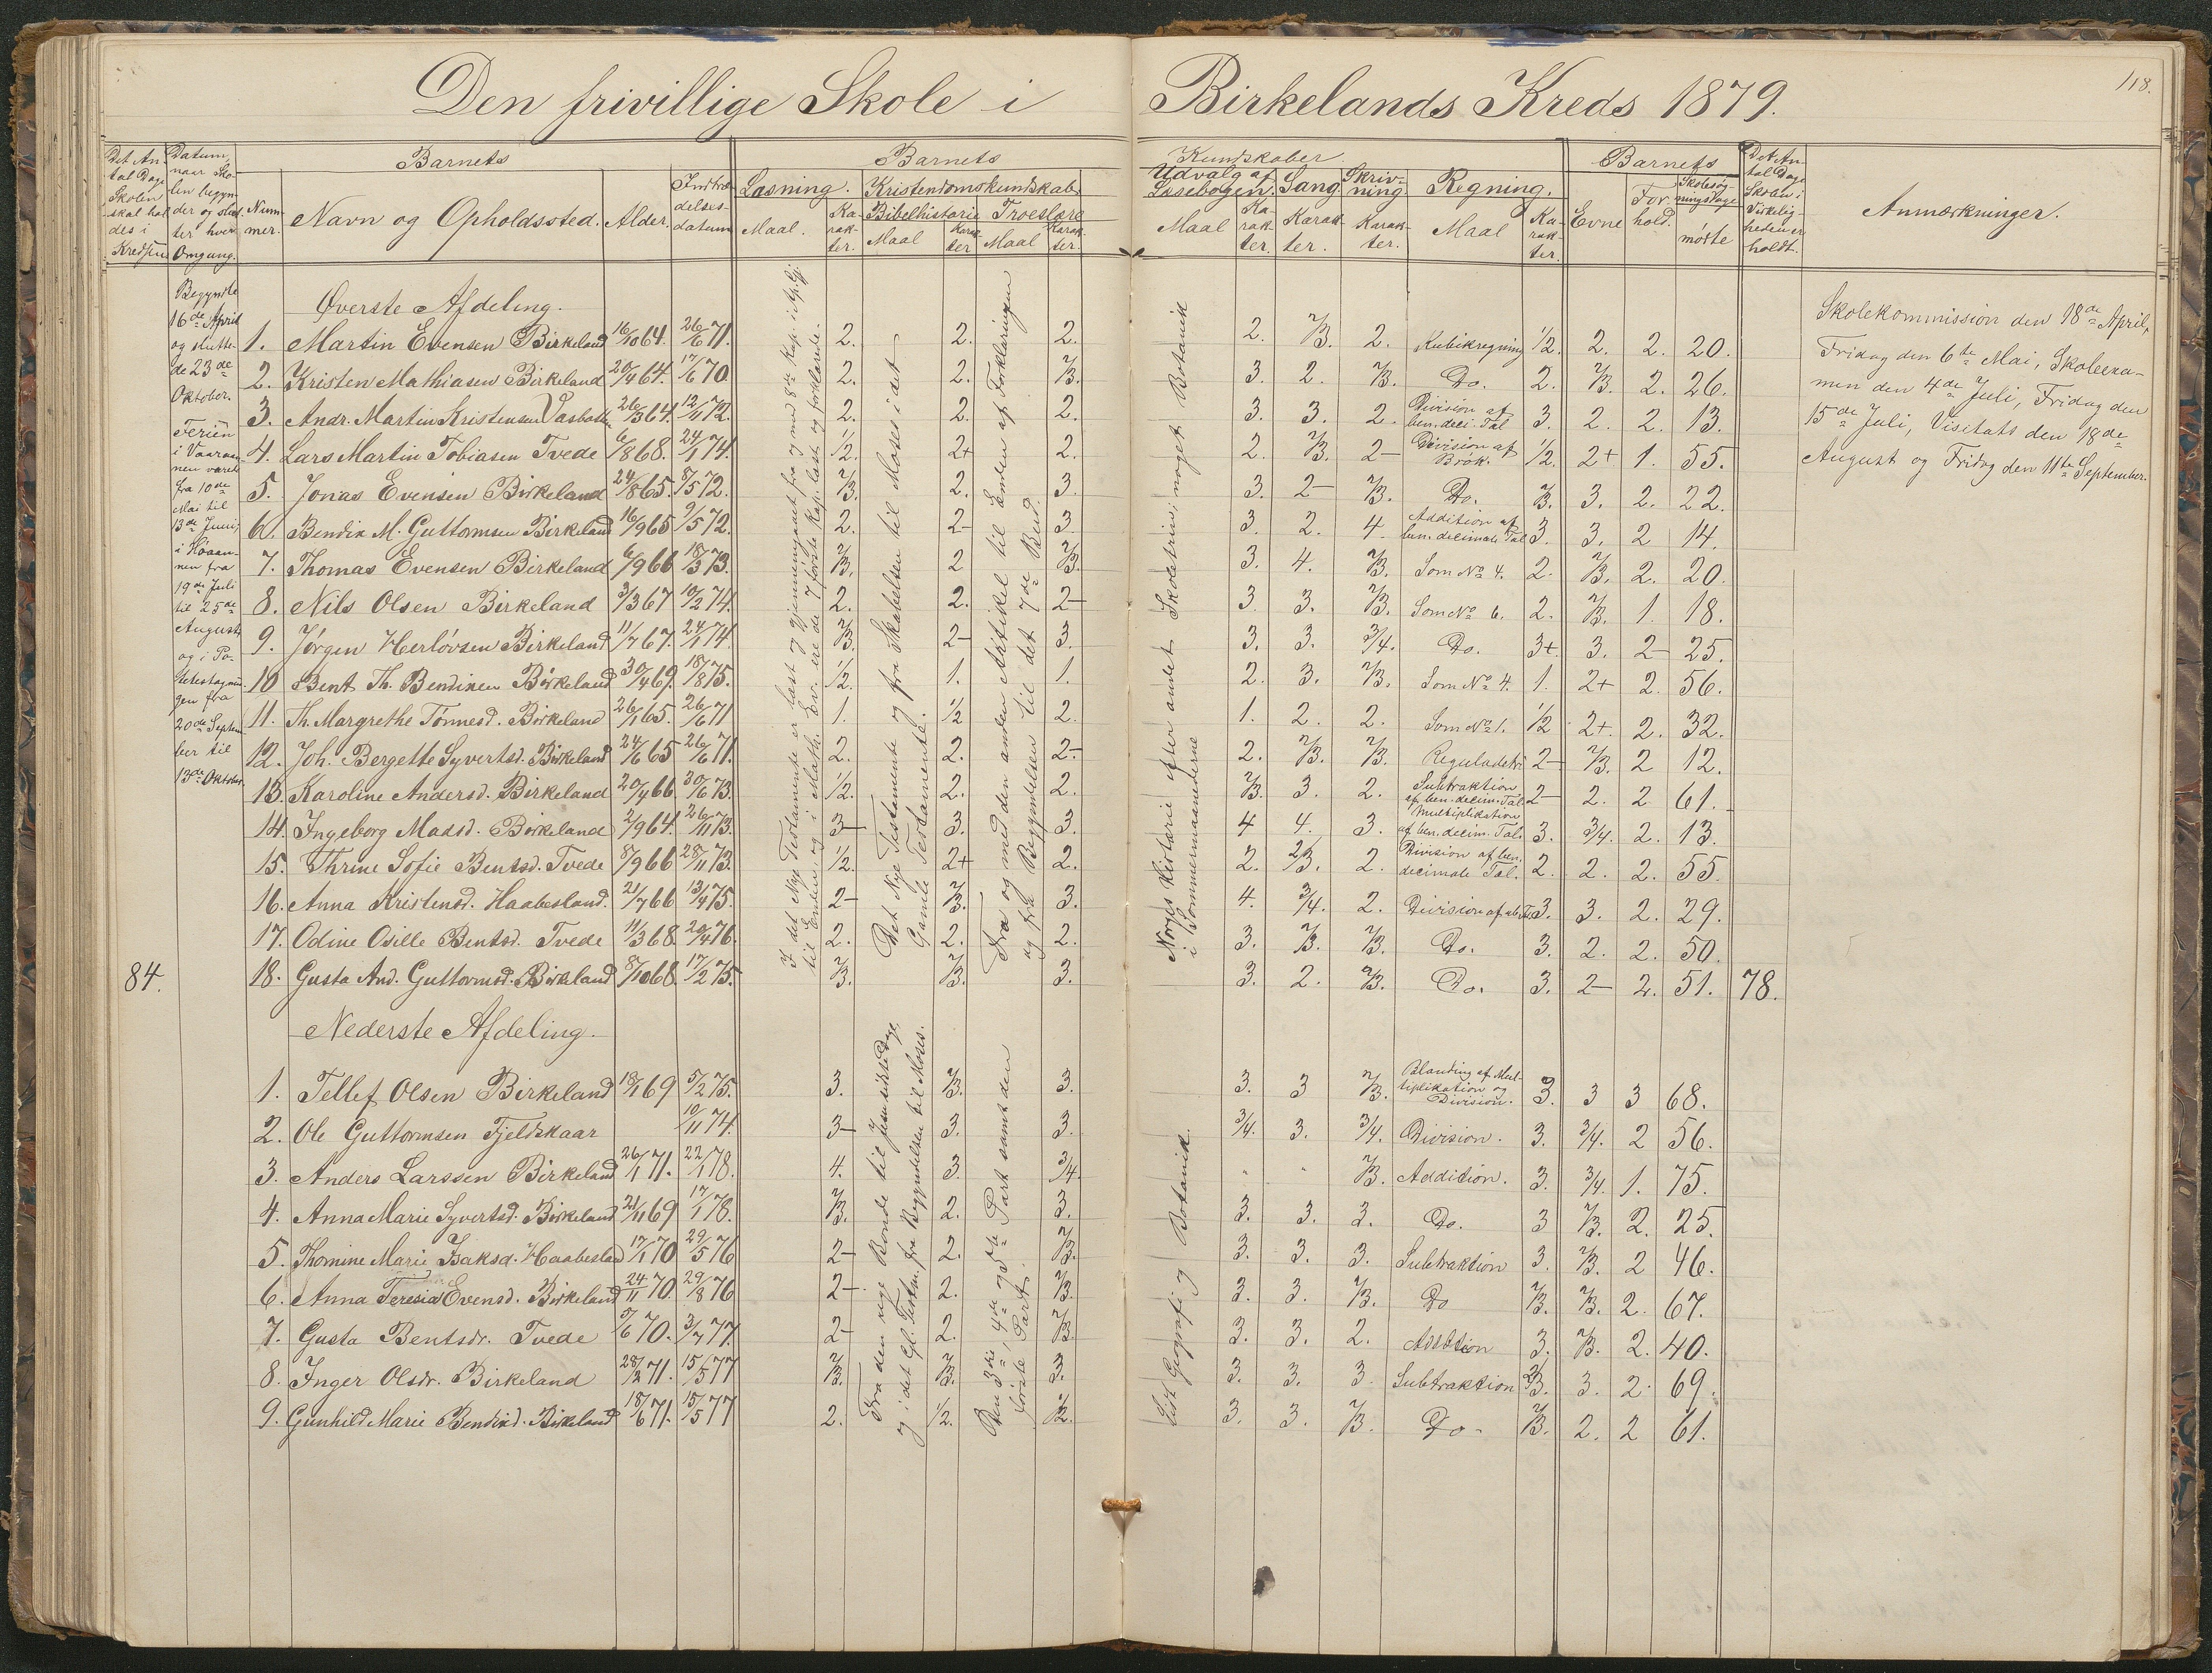 Den frivillige Skole i Birkelands Kreds 1879.
118.
Det Antal Dage Skolen skal holdes i Kredsen
Datum, naar Skolen begynder og slutter hver Omgang.
Barnets
Nummer.
Navn og Opholdssted.
Alder.
Indtrædelsesdatum
Barnets Kundskaber
Læsning.
Maal.
Karakter.
Kristendomskundskab
Bibelhistorie
Maal
Karakter
Troeslære
Maal
Karakter.
Udvalg af Læsebogen.
Maal
Karakter.
Sang
Karakter.
Skrivning.
Karakter.
Regning.
Maal
Karakter.
Barnets
Evne
Forhold.
Skolesøgningsdage
mødte
Det Antal Dage Skolen i Virkeligheden er holdt.
Anmærkninger.
Begyndte
16de April
og slutte-
de 23de
Oktober.
Ferien
i Vaaraan-
nen varet
fra 10de
Mai til
13de Juni,
i Høaan-
nen fra
19de Juli
til 25de
August
og i Po-
tetestagnin-
gen fra
20de Septem-
ber til
13de Oktober.
84.
Øverste Afdeling.
1. Martin Evensen Birkeland 16/10 64. 26/6 71. 2. 2. 2. 2. 2/3. 2. Kubikregning 1/2. 2. 2. 20.
2. Kristen Mathiasen Birkeland 20/4 64. 17/6 70. 2. 2. 2/3. 3. 2. 2/3. Do. 2. 2/3. 2. 26.
3. Andr. Martin Kristensen Vasbotten 26/3 64. 12/11 72. 2. 2. 2. 3. 3. 2. Division af ben. deci. Tal 3. 2. 2. 13.
4. Lars Martin Tobiasen Tvede 6/8 68. 24/1 74. 1/2. 2+ 2. 2. 2/3. 2- Division af Brøk. 1/2. 2+ 1. 55.
5. Jonas Evensen Birkeland 24/8 65. 8/5 72. 2/3. 2. 3. 3. 2- 2/3. Do. 2/3. 3. 2. 22.
6. Bendix M. Guttormsen Birkeland 16/9 65 9/5 72. 2. 2- 3 3. 2. 4. Addition af ben. decimale Tal 3. 3. 2 14.
7. Thomas Evensen Birkeland 6/9 66 18/3 73. 2/3. 2 2/3. 3. 4. 2/3. Som No 4. 2. 2/3. 2. 20.
8. Nils Olsen Birkeland 3/3 67 10/2 74. 2. 2. 2- 3 3. 2/3. Som No 6. 2. 2/3. 1. 18.
9. Jørgen Herløvsen Birkeland 11/7 67. 24/1 74. 2/3. 2- 3. 3. 3. 3/4. Do. 3+. 3. 2- 25.
10 Bent Th. Bendixen Birkeland 30/4 69. 18/8 75. 1/2. 1. 1. 2. 3. 2/3. Som No 4. 1. 2+ 2. 56.
11. Th. Margrethe Tønnesd. Birkeland 26/1 65. 26/6 71 1. 1/2 2. 1. 2. 2. Som No 1. 1/2 2+. 2. 32.
12. Joh. Bergette Syvertsd. Birkeland 24/6 65 26/6 71. 2. 2. 2- 2. 2/3. 2/3. Reguladetri 2- 2/3. 2 12.
13. Karoline Andersd. Birkeland 20/4 66 30/6 73. 1/2. 2. 2. 2/3. 3. 2. Subtraktion af ben. decim. Tal 2- 2. 2 61.
14. Ingeborg Madsd. Birkeland 2/9 64. 26/11 73. 3- 3. 3. 4 4. 3. Multiplikation af ben. decim. Tal. 3. 3/4. 2. 13.
15. Thrine Sofie Bentsd. Tvede 8/9 66 28/11 73. 1/2. 2+ 2. 2. 2/3. 2. Division af ben. decimale Tal. 2. 2. 2. 55
16. Anna Kristensd. Haabesland. 21/7 66 13/4 75. 2- 2/3. 3. 4. 3/4. 2. Division af 3. 3. 2. 29.
17. Odine Osille Bentsd. Tvede 11/3 68. 20/4 76. 2. 2. 2. 3. 2/3. 2/3. Do. 3. 2. 2. 50.
18. Gusta And. Guttormsd. Birkeland 8/10 68. 17/2 75. 2/3. 2/3. 3. 3. 2. 2/3. Do. 3. 2- 2. 51. 78.
I det Nye Testamente er læst og gjennemgaaet fra og med 8de Kap. i Ap. Gj.
til Enden og i Math. Ev. ere de 7 første Kap. læst og forklarede.
Det Nye Testamente og fra Skabelsen til Moses i det
Gamle Testamente.
Fra og med den anden Artikel til Enden af Forklaringen
og fra Begyndelsen til det 7de Bud.
Norges Historie efter andet Skoletrin, noget Botanik
i Sommermaanederne
Nederste Afdeling.
1. Tellef Olsen Birkeland 18/1 69 5/2 75. 3. 2/3. 3. 3. 3 2/3. Blanding af Multiplikation og Division. 3. 3 3 68.
2. Ole Guttormsen Fjeldskaar 10/11 74. 3- 3. 3. 3/4. 3. 3/4. Division. 3. 3/4. 2 56.
3. Anders Larssen Birkeland 26/1 71. 22/1 78. 4. 3. 3/4. - - 2/3. Addition. 3. 3/4. 1. 75.
4. Anna Marie Syvertsd. Birkeland 21/11 69 17/1 78. 2/3. 2. 3. 3. 3. 3. Do. 3 2/3. 2. 25.
5. Thomine Marie Isaksd. Haabesland 17/1 70 29/5 76 2- 2. 2/3. 3. 3. 3. Subtraktion 3. 2/3. 2 46.
6. Anna Teresia Evensd. Birkeland 24/11 70. 29/8 76 2- 2. 2/3. 3. 3. 2/3. Do 2/3. 2/3. 2. 67.
7. Gusta Bentsdr. Tvede 5/6 70. 3/7 77. 2- 2. 2/3. 3. 3. 2. Addition 3. 2/3. 2. 40.
8. Inger Olsdr. Birkeland 28/2 71. 15/5 77 2/3. 2/3. 3. 3. 3. 3 Subtraktion 2/3. 3. 2. 69.
9. Gunhild Marie Bendixd. Birkeland 18/6 71. 15/5 77 2. 1/2. 1/2. 3. 3. 2/3. Do. 2/3. 2. 2 61.
Fra den rige Bonde til Jesu sidste Dage,
og i det Gl. Testm. fra Begyndelsen til Moses.
Den 3die, 4de og 5te Part samt den
første Part.
Lidt Geografi og Botanik.
Skolekommission den 18de April,
Fridag den 6te Mai, Skoleexa-
men den 4de Juli, Fridag den
15de Juli, Visitats den 18de
August og Fridag den 11te September.